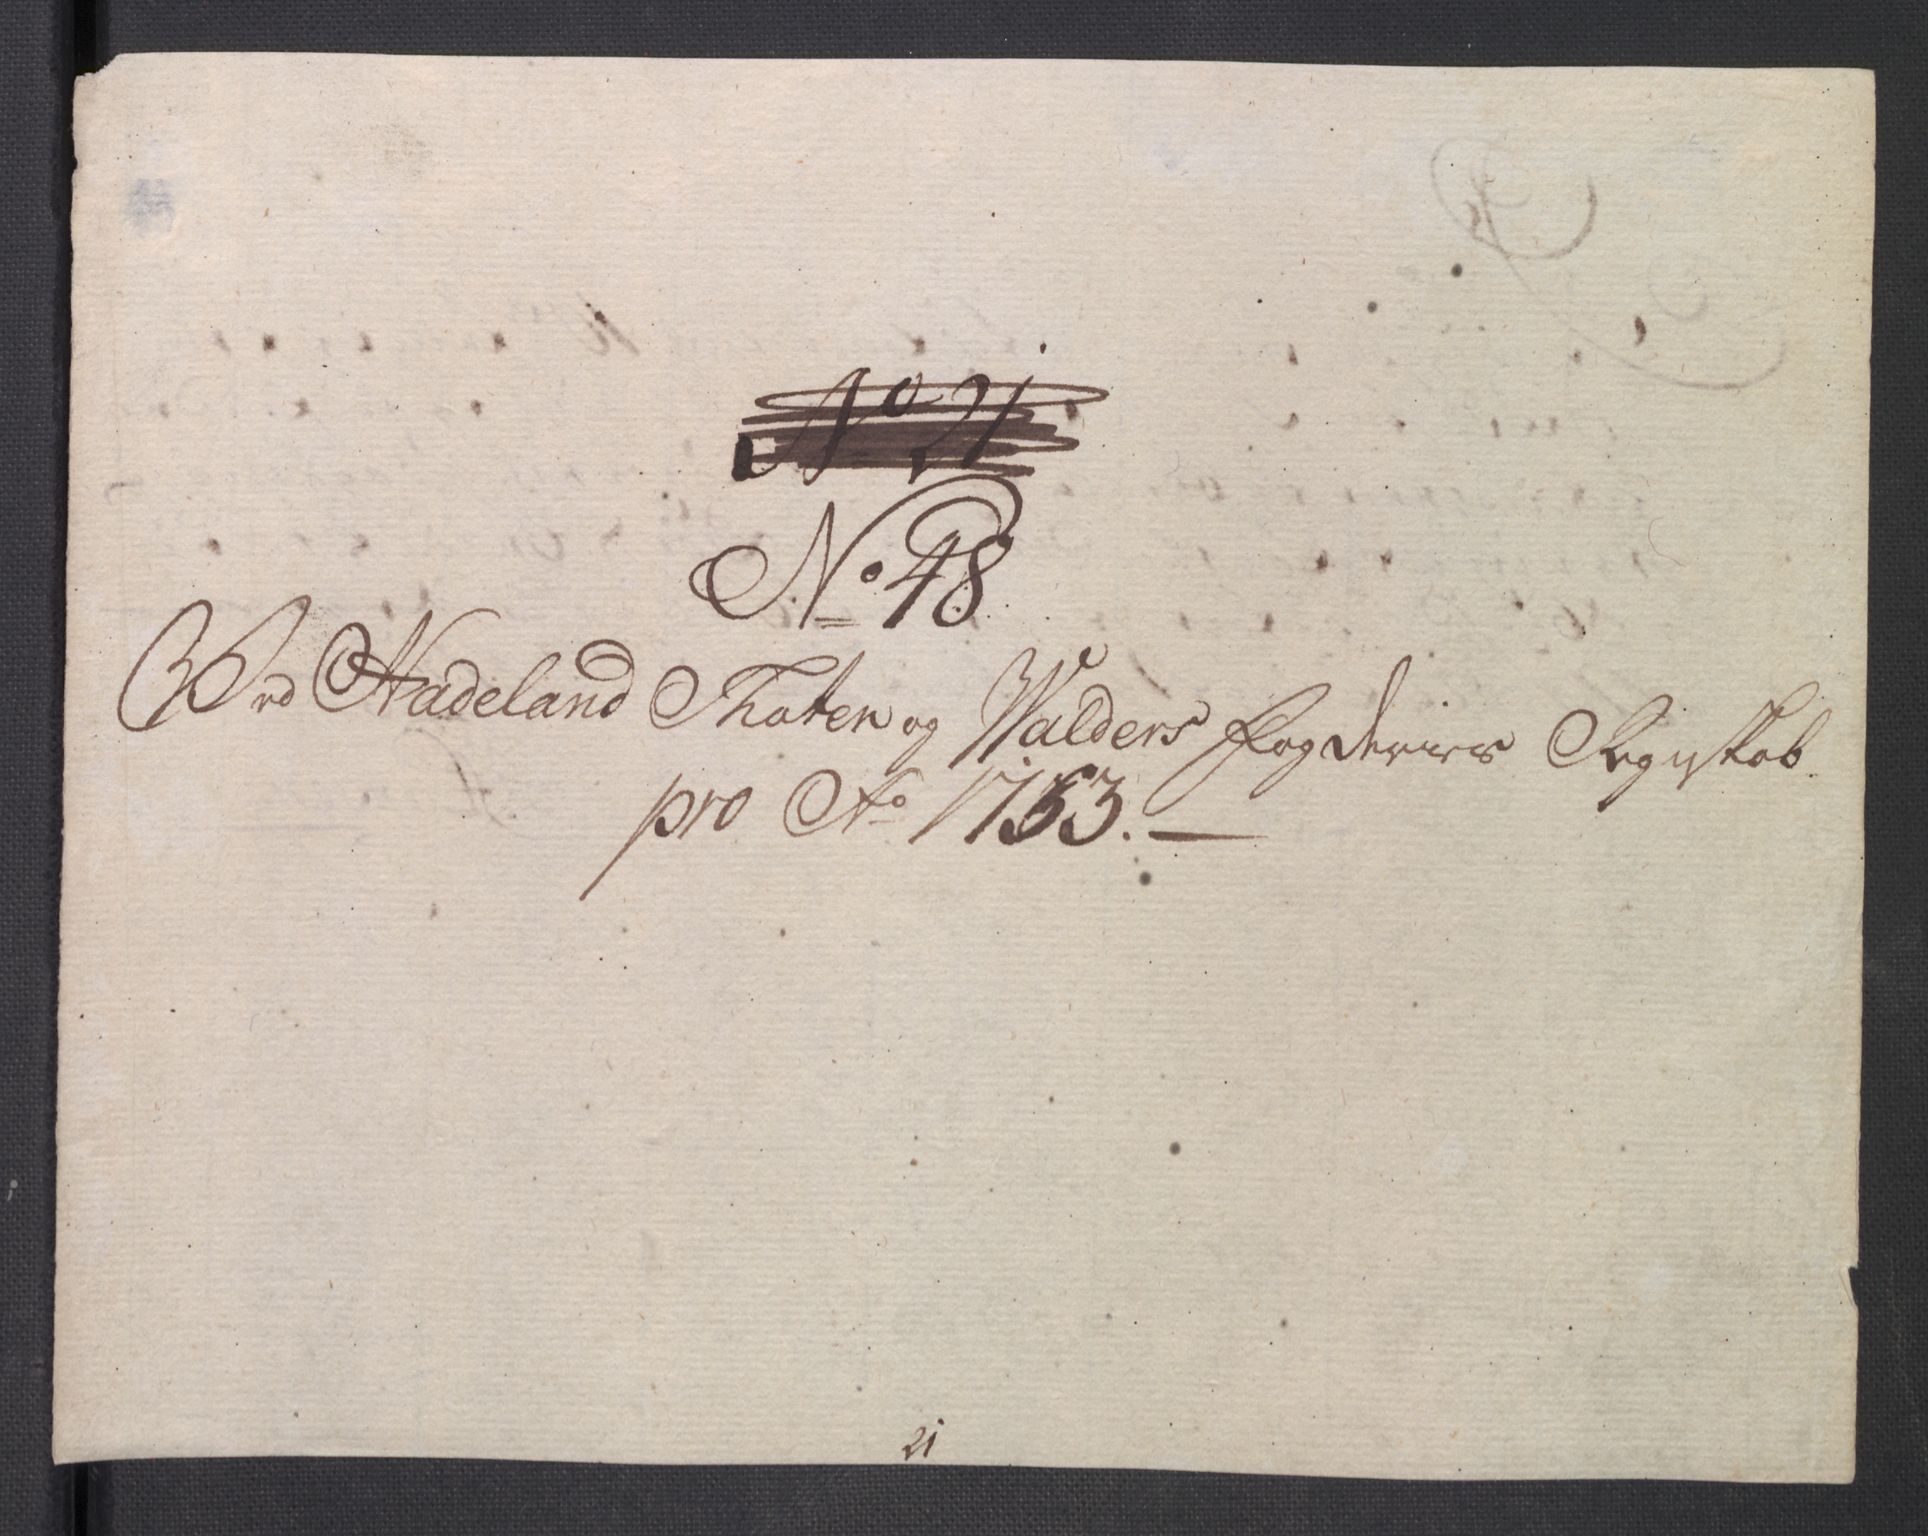 No 21
No 48
Ved Hadeland Thoten og Walders Fogderies Regnskab
pro Ao 1753.
21